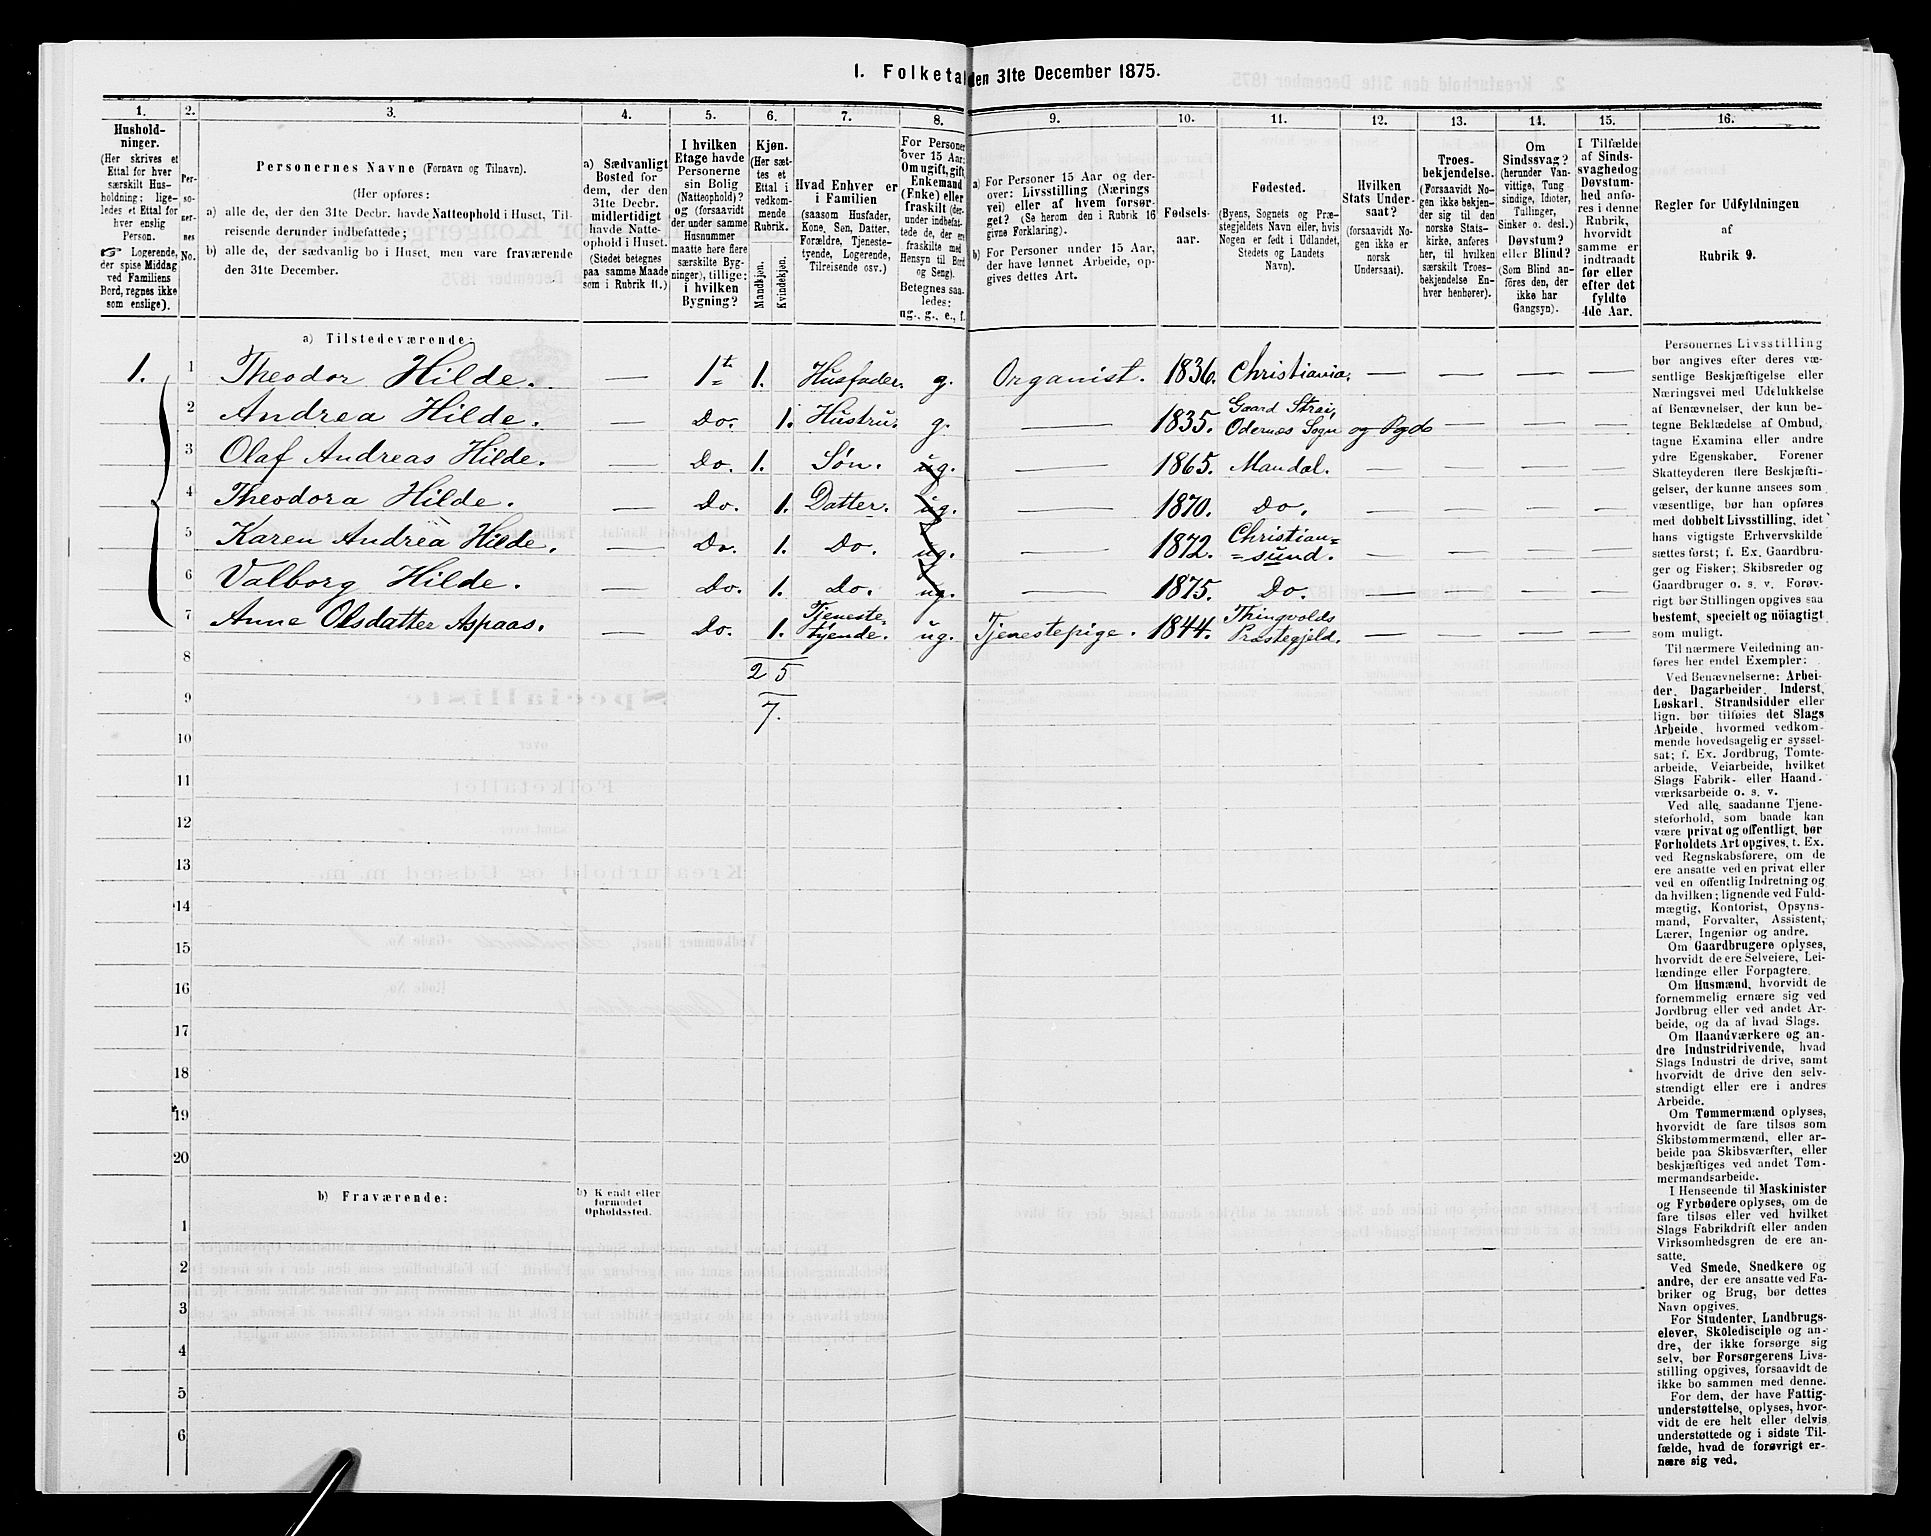 1. Folketal den 31te December 1875.
1.
2.
3.
4.
5.
6.
7.
8.
9.
10.
11.
12.
13.
14.
15.
16.
Hushold-
ninger.
(Her skrives et
Ettal for hver
særskilt Hus-
holdning; lige-
ledes et Ettal for
hver enslig
Person.
☞ Logerende,
der spise Middag
ved Familiens
Bord, regnes ikke
som enslige).
Per-
so-
ner-
nes
No.
Personernes Navne (Fornavn og Tilnavn).
(Her opføres:
a) alle de, der den 31te Decbr. havde Natteophold i Huset, Til-
reisende derunder indbefattede;
b) alle de, der sædvanlig bo i Huset, men vare fraværende
den 31te December.
a) Sædvanligt
Bosted for
dem, der den
31te Decbr.
midlertidigt
havde Natte-
ophold i Huset.
(Stedet betegnes
paa samme Maade
som i Rubrik 11.)
I hvilken
Etage havde
Personerne
sin Bolig
(Natteophold)?
og (forsaavidt
der under samme
Husnummer
maatte høre flere
særskilte Byg-
ninger), tillige:
i hvilken
Bygning?
Kjøn.
(Her sæt-
tes et
Ettal i
vedkom-
mende
Rubrik.
Mandkjøn.
Kvindekjøn.
Hvad Enhver er
i Familien
(saasom Husfader,
Kone, Søn, Datter,
Forældre, Tjeneste-
tyende, Logerende,
Tilreisende osv.)
For Personer
over 15 Aar:
Om ugift, gift,
Enkemand
(Enke) eller
fraskilt (der-
under indbefat-
tede de, der ere
fraskilte med
Hensyn til Bord
og Seng).
Betegnes saa-
ledes:
ug., g., e., f.
a) For Personer 15 Aar og der-
over: Livsstilling (Nærings
vei) eller af hvem forsør-
get? (Se herom den i Rubrik 16
givne Forklaring).
b) For Personer under 15 Aar,
der have lønnet Arbeide, op-
gives dettes Art.
Fødsels-
aar.
Fødested.
(Byens, Sognets og Præ-
stegjeldets Navn eller, hvis
Nogen er født i Udlandet,
Stedets og Landets
Navn).
Hvilken
Stats Under-
saat?
(forsaavidt No-
gen ikke er
norsk
Undersaat).
Troes-
bekjendelse.
(Forsaavidt No-
gen ikke bekjen-
der sig til den
norske Stats-
kirke, anføres
her, til hvilken
særskilt Troes-
bekjendelse En-
hver henhører).
Om
Sindssvag?
(herunder Van-
vittige, Tung
sindige, Idioter,
Tullinger,
Sinker o. desl.)
Døvstum?
eller Blind?
(Som Blind an-
føres den, der
ikke har
Gangsyn).
I Tilfælde
af Sinds-
svaghed og
Døvstum-
hed anfø-
res i denne
Rubrik,
hvorvidt
samme er
indtraadt
før eller
efter det
fyldte
4de Aar.
Regler for Udfyldningen
af
Rubrik 9.
a) Tilstedeværende:
1. 1 Theodor Hilde. — 1ste 1. Husfader. g. Organist. 1836. Christiania. — — — —
2 Andrea Hilde. — Do. 1. Hustru. g. — 1835. Gaard Strai, Odernes Sogn og Pgd. — — —
3 Olaf Andreas Hilde. — Do. 1. Søn. ug. — 1865. Mandal. — — — —
4 Theodora Hilde. — Do. 1. Datter. ug. — 1870. Do. — — — —
5 Karen Andrea Hilde. — Do. 1. Do. ug. — 1872. Christian= =sund. — — — —
6 Valborg Hilde. — Do. 1. Do. ug. — 1875. Do. — — — —
7 Anne Olsdatter Aspaas. Do. 1. Tjeneste- tyende. ug. Tjenestepige. 1844. Thingvolds Præstegjeld. — — — —
8
2 5
9
7.
10
11
12
13
14
15
16
17
18
19
20
b) Fraværende:
b) Kjendt eller
formodet
Opholdssted.
1
2
3
4
5
6
Personernes Livsstilling
bør angives efter deres væ-
sentlige Beskjæftigelse eller
Næringsvei med Udelukkelse
af Benævnelser, der kun be-
tegne Beklædelse af Ombud,
tagne Examina eller andre
ydre Egenskaber. Forener
Skatteyderen flere Beskjæfti-
gelser, der kunne ansees som
væsentlige, bør han opføres
med dobbelt Livsstilling, idet
hans vigtigste Erhvervskilde
sættes først; f. Ex. Gaardbru-
ger og Fisker; Skibsreder og
Gaardbruger o. s. v. Forøv-
rigt bør Stillingen opgives saa
bestemt, specielt og nöiagtigt
som muligt.
Til nærmere Veiledning an-
føres her endel Exempler:
Ved Benævnelserne: Arbei-
der, Dagarbeider, Inderst,
Løskarl, Strandsidder eller
lign. bør tilføies det Slags
Arbeide, hvormed vedkom-
mende hovedsagelig er syssel-
sat; f. Ex. Jordbrug, Tomte-
arbeide, Veiarbeide, hvilket
Slags Fabrik- eller Haand-
værksarbeide o. s. v.
Ved alle saadanne Tjene-
steforhold, som baade kan
være privat og offentligt, bør
Forholdets Art opgives, t. Ex.
ved Regnskabsførere, om de
ere ansatte ved en privat eller
ved en offentlig Indretning og
da hvilken; lignende ved Fuld-
mægtig, Kontorist, Opsyns-
mand, Forvalter, Assistent,
Lærer, Ingeniør og andre.
Om Gaardbrugere oplyses,
hvorvidt de ere Selveiere, Lei-
lændinge eller Forpagtere.
Om Husmænd, hvorvidt de
fornemmelig ernære sig ved
Jordbrug eller ved andet Ar-
beide, og da af hvad Slags.
Om Haandværkere og an-
dre Industridrivende, hvad
Slags Industri de drive, samt
hvorvidt de drive den selv-
stændigt eller ere i andres
Arbeide.
Om Tømmermænd oplyses,
hvorvidt de fare tilsøs som
Skibstømmermænd, eller ar-
beide paa Skibsværfter, eller
beskjæftiges ved andet Tøm-
mermandsarbeide.
I Henseende til Maskinister
og Fyrbødere oplyses, om de
fare tilsøs eller ved hvilket
Slags Fabrikdrift eller anden
Virksomhedsgren de ere an-
satte.
Ved Smede, Snedkere og
andre, der ere ansatte ved Fa-
briker og Brug, bør dettes
Navn opgives.
For Studenter, Landbrugs-
elever, Skoledisciple og an-
dre, der ikke forsørge sig
selv, bør Forsørgerens Livs-
stilling opgives, forsaavidt de
ikke bo sammen med denne.
For dem, der have Fattig-
understøttelse, oplyses, hvor-
vidt de ere helt eller delvis
understøttede og i sidste Til-
fælde, hvad de forøvrigt er-
nære sig ved.